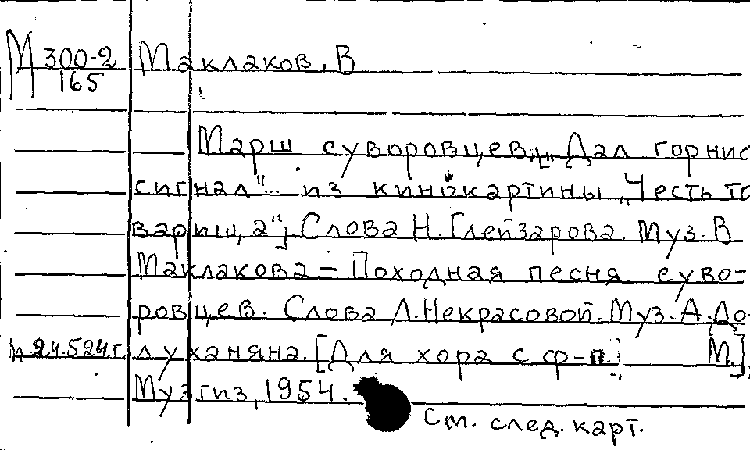 М 300-2
165
Маклаков, В
Марш суворовцев. „Дал горнис
сигнал" из кинокартины „Честь то
варища"; Слова Н. Глейзарова. Муз. В
Маклакова - Походная песня суво-
ровцев. Слова Л. Некрасовой. Муз. А. До-
луханяна. [Для хора с ф-п.] [М.],
Музгиз, 1954.
См. след. карт.